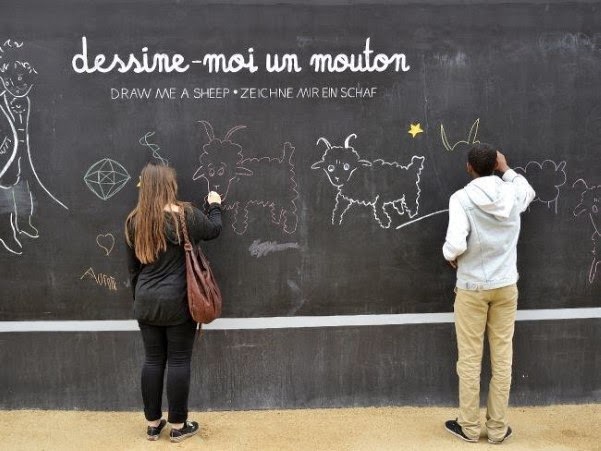 dessine-moi un mouton
DRAW ME A SHEEP • ZEICHNE MIR EIN SCHAF